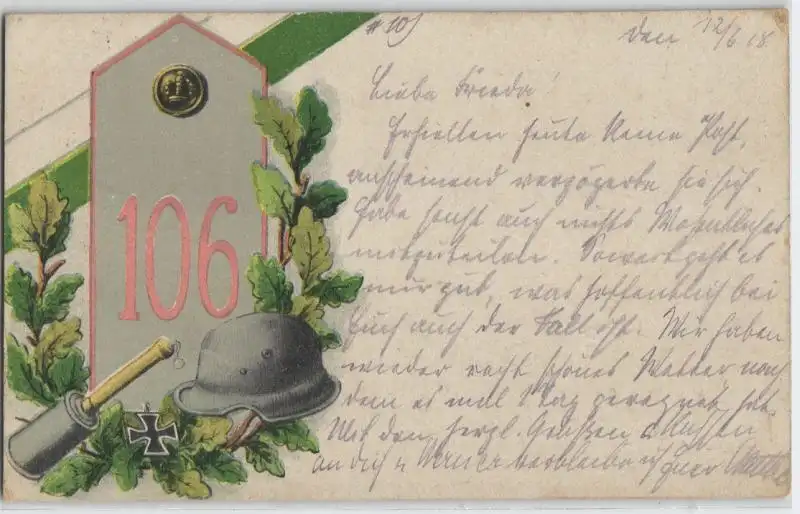 #10)
den 12/6 18.
Liebe Frieda!
Erhielten heute keine Post,
anscheinend verzögerte sie sich.
Habe sonst auch nichts Wesentliches
mitzuteilen. Soweit geht es
mir gut, was hoffentlich bei
Euch auch der Fall ist. Wir haben
wieder recht schönes Wetter nach
dem es mal 1 Tag geregnet hat.
Mit den herzl. Grüßen u Küssen
an Dich u Werner verbleibe ich Euer
106